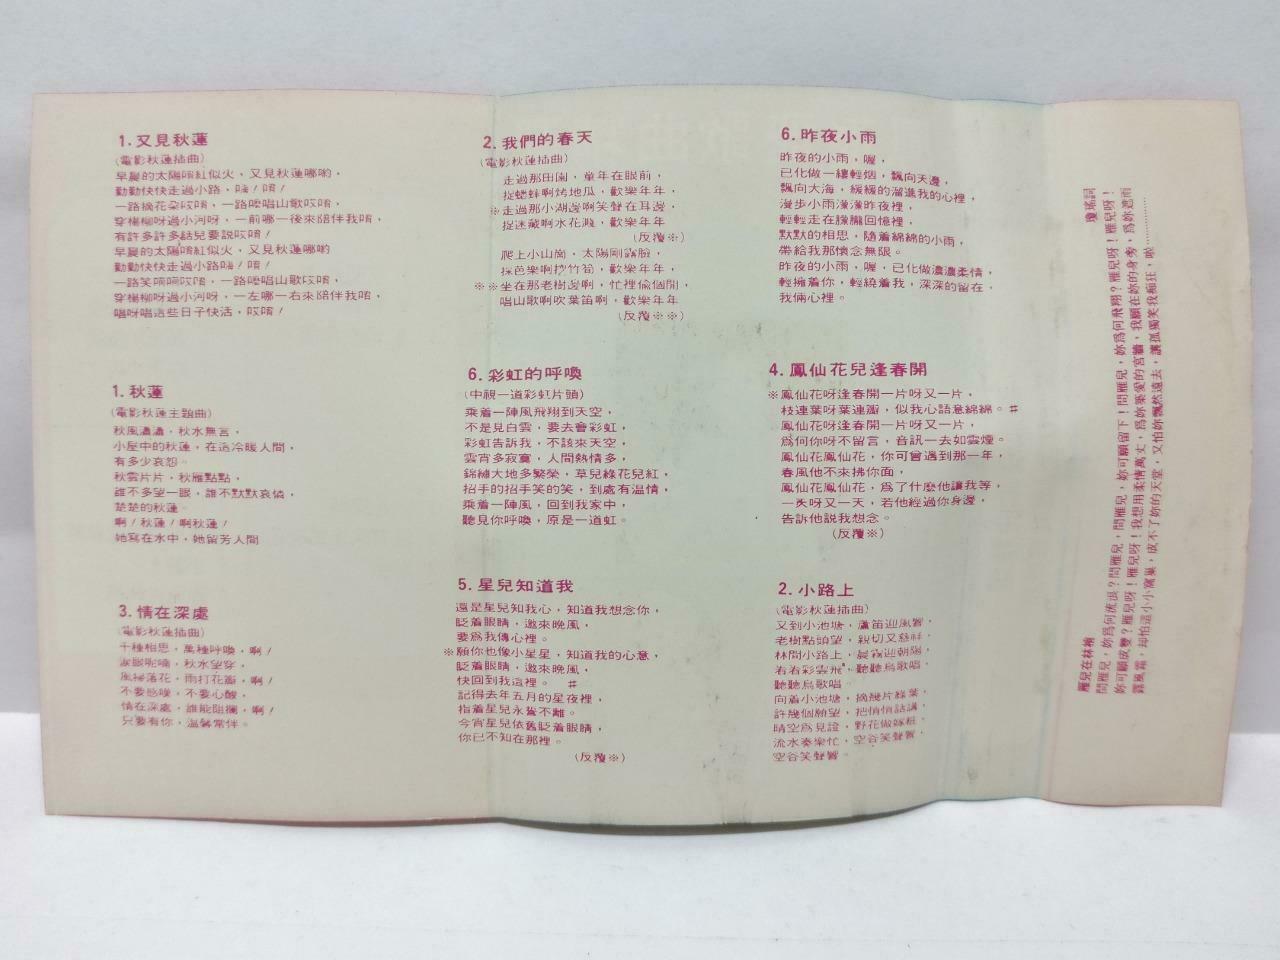 1. 又見秋蓮
(電影秋蓮插曲)
早晨的太陽唷紅似火，又見秋蓮哪喲，
勤勤快快走過小路，嗨！唷！
一路摘花朵哎唷，一路嚜唱山歌哎唷，
穿楊柳呀過小河呀，一前哪一後來陪伴我唷，
有許多許多話兒要說哎唷！
早晨的太陽唷紅似火，又見秋蓮哪喲
勤勤快快走過小路嗨！唷！
一路笑嗬嗬哎唷，一路嚜唱山歌哎唷，
穿楊柳呀過小河呀，一左哪一右來陪伴我唷，
唱呀唱這些日子快活，哎唷！
1. 秋蓮
(電影秋蓮主題曲)
秋風瀟瀟，秋水無言，
小屋中的秋蓮，在這冷暖人間，
有多少哀怨。
秋雲片片，秋雁點點，
誰不多望一眼，誰不默默哀憐，
楚楚的秋蓮。
啊！秋蓮！啊秋蓮！
她寫在水中，她留芳人間
3. 情在深處
(電影秋蓮插曲)
千種相思，萬種呼喚，啊！
淚眼呢喃，秋水望穿，
風掃落花，雨打花瓣，啊！
不要感嘆，不要心酸，
情在深處，誰能阻攔，啊！
只要有你，溫馨常伴。
2. 我們的春天
(電影秋蓮插曲)
走過那田園，童年在眼前，
捉蟋蟀啊烤地瓜，歡樂年年，
※走過那小湖邊啊笑聲在耳邊，
捉迷藏啊水花濺，歡樂年年
(反覆※)
爬上小山崗，太陽剛露臉，
採芭樂啊挖竹筍，歡樂年年，
※※坐在那老樹邊啊，忙裡偷個閒，
唱山歌啊吹葉笛啊，歡樂年年
(反覆※※)
6. 彩虹的呼喚
(中視一道彩虹片頭)
乘着一陣風飛翔到天空，
不是見白雲，要去會彩虹，
彩虹告訴我，不該來天空，
雲宵多寂寞，人間熱情多，
錦繡大地多繁榮，草兒綠花兒紅，
招手的招手笑的笑，到處有溫情，
乘着一陣風，回到我家中，
聽見你呼喚，原是一道虹。
5. 星兒知道我
還是星兒知我心，知道我想念你，
眨着眼睛，邀來晚風，
要爲我傳心裡。
※願你也像小星星，知道我的心意，
眨着眼睛，邀來晚風，
快回到我這裡。 #
記得去年五月的星夜裡，
指着星兒永鴛不離。
今宵星兒依舊眨着眼睛，
你已不知在那裡。
(反覆※)
6. 昨夜小雨
昨夜的小雨，喔，
已化做一縷輕烟，飄向天邊，
飄向大海，緩緩的溜進我的心裡，
漫步小雨濛濛昨夜裡，
輕輕走在朦朧回憶裡，
默默的相思，隨着綿綿的小雨，
帶給我那懷念無限。
昨夜的小雨，喔，已化做濃濃柔情，
輕擁着你，輕繞着我，深深的留在，
我倆心裡。
4. 鳳仙花兒逢春開
※鳳仙花呀逢春開一片呀又一片，
枝連葉呀葉連瓣，似我心語意綿綿。#
鳳仙花呀逢春開一片呀又一片，
爲何你呀不留言，音訊一去如雲煙。
鳳仙花鳳仙花，你可曾遇到那一年，
春風他不來拂你面，
鳳仙花鳳仙花，爲了什麼他讓我等，
一天呀又一天，若他經過你身邊，
告訴他說我想念。
(反覆※)
2. 小路上
(電影秋蓮插曲)
又到小池塘，蘆笛迎風響，
老樹點頭望，親切又慈祥，
林間小路上，晨霧迎朝陽，
看看彩雲飛，聽聽鳥歌唱，
聽聽鳥歌唱。
向着小池塘，摘幾片綠葉，
許幾個願望，把悄悄話講，
晴空爲見證，野花做嫁粧，
流水奏樂忙，空谷笑聲響，
空谷笑聲響。
雁兒在林梢 瓊瑤詞
問雁兒，妳爲何流浪？問雁兒，妳可願留下！問雁兒，妳爲何飛翔？雁兒呀！雁兒呀！
妳可願成雙？雁兒呀！雁兒呀！我想用柔情萬丈，爲妳築愛的宮牆，我願在妳的身旁，爲妳遮雨
露風霜，却怕這小小窩巢，成不了妳的天堂，又怕妳飄然遠去，讓孤獨笑我痴狂，啦…………